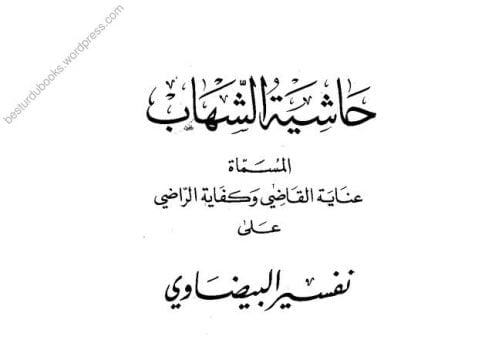 besturdubooks.wordpress.com
حَاشِيَةُ الشِّهَابِ
المُسَمَّاة
عناية القاضِي وكفاية الرّاضِي
عَلىٰ
تفسير البيضَاوي